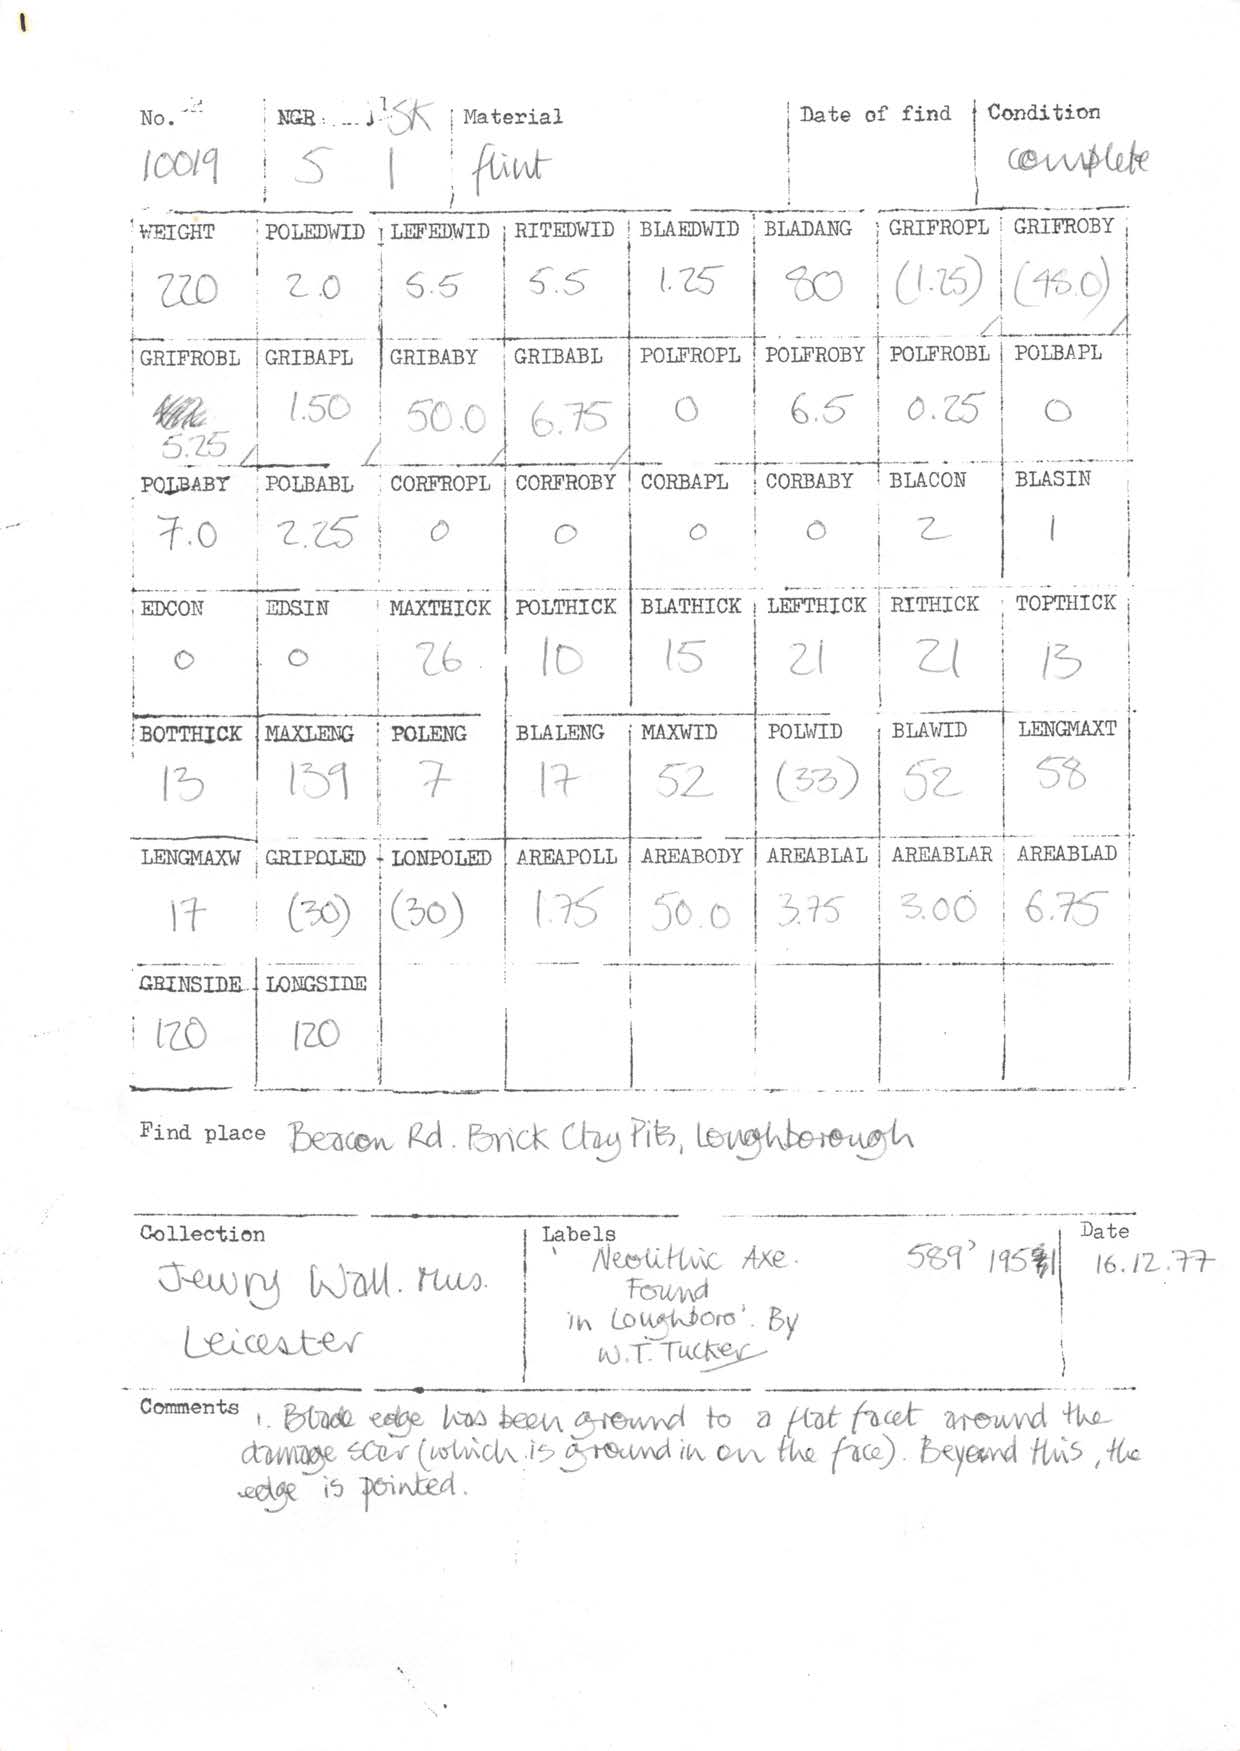 1
No. NGR SK Material Date of find Condition
10019 5 1 flint complete
WEIGHT POLEDWID LEFEDWID RITEDWID BLAEDWID BLADANG GRIFROPL GRIFROBY
220 2.0 5.5 5.5 1.25 80 (1.25) (48.0)
GRIFROBL GRIBAPL GRIBABY GRIBABL POLFROPL POLFROBY POLFROBL POLBAPL
5.25 1.50 50.0 6.75 0 6.5 0.25 0
POLBABY POLBABL CORFROPL CORFROBY CORBAPL CORBABY BLACON BLASIN
7.0 2.25 0 0 0 0 2 1
EDCON EDSIN MAXTHICK POLTHICK BLATHICK LEFTHICK RITHICK TOPTHICK
0 0 26 10 15 21 21 13
BOTTHICK MAXLENG POLENG BLALENG MAXWID POLWID BLAWID LENGMAXT
13 139 7 17 52 (33) 52 58
LENGMAXW GRIPOLED LONPOLED AREAPOLL AREABODY AREABLAL AREABLAR AREABLAD
17 (30) (30) 1.75 50.0 3.75 3.00 6.75
GRINSIDE LONGSIDE
120 120
Find place Beacon Rd. Brick Clay Pits, Loughborough
Collection Labels Date
Jewry Wall. Mus. ' Neolithic Axe. 589' 1951 16.12.77
Found
Leicester in Loughboro'. By
W.T. Tucker
Comments 1. Blade edge has been ground to a flat facet around the
damage scar (which is ground in on the face). Beyond this, the
edge is pointed.